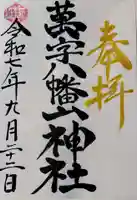 奉拝
萬字八幡神社
令和七年九月二十二日